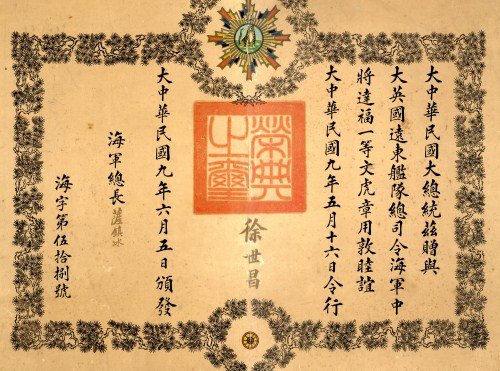 大中華民國大總統茲贈與
大英國遠東艦隊總司令海軍中
將達福一等文虎章用敦睦誼
大中華民國九年五月十六日令行
榮典之璽
徐世昌
大中華民國九年六月五日頒發
海軍總長薩鎮冰
海字第伍拾捌號